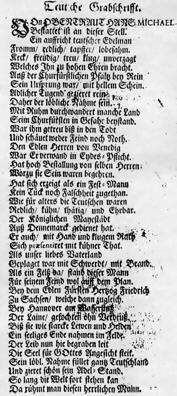 Teutsche Grabschrifft.
VOn OBERTRAUT HANS MICHAEL
Bestattet ist an dieser Stell.
Ein auffricht teutscher Edelman
Fromm/ redlich/ tapffer/ lobesahm.
Keck/ freudig/ treu/ klug/ unverzagt
Welches Ihn zu hohen Ehren bracht.
Auß der Churfürstlichen Pfaltz bey Rein
Sein Ursprung war/ mit hellem Schein.
Adlicher Tugend gezieret rein/
Daher der löbliche Nahme sein.
Mit Ruhm durchwandert manche Land
Seim Churfürsten in Gefahr beystand.
War ihm getreu biß in den Todt
Und schäuet weder Feind noch Noth.
Den Edlen Herren von Venedig
War Erbewand in Eydes-Pflicht.
Hat hoch Bestallung von selben Herren/
Worzu sie Sein waren begehren.
Hat sich erzeigt als ein Fest-Mann
Kein Tück noch Falschheit zugethan.
Wie für alters die Teutschen waren
Redlich/ kühn/ tháthig/ und Ehrbar.
Der Königlichen Mayestädt
Auß Dennemarck gedienet hat.
Er auch/ mit Hand und klugem Rath
Sich praesentiret mit kühner That.
Als unser liebes Vaterland
Geplaget war mit Schwerdt/ mit Brand.
Als ein Felß da/ stand dieser Mann
Für seinem Feind wol auff dem Plan.
Bey dem Edlen Fürsten Hertzog Friedrich
Zu Sachsen/ welche dann zugleich.
Bey Hannover am
Der Laine/ gefochten ohn Verdrieß
Biß sie wie starcke Lewen und Helden
Ein seeliges Ende nahmen im Felde.
Der Leib nun hie begraben leit
Die Seel für GOttes Angesicht steit.
Sein löbl. Nahme füllet gantz Teutschland
Und zieret schön sein Adel-Stand.
So lang die Welt fort stehen kan
Da rühmt man diesen herrlichen Mann.